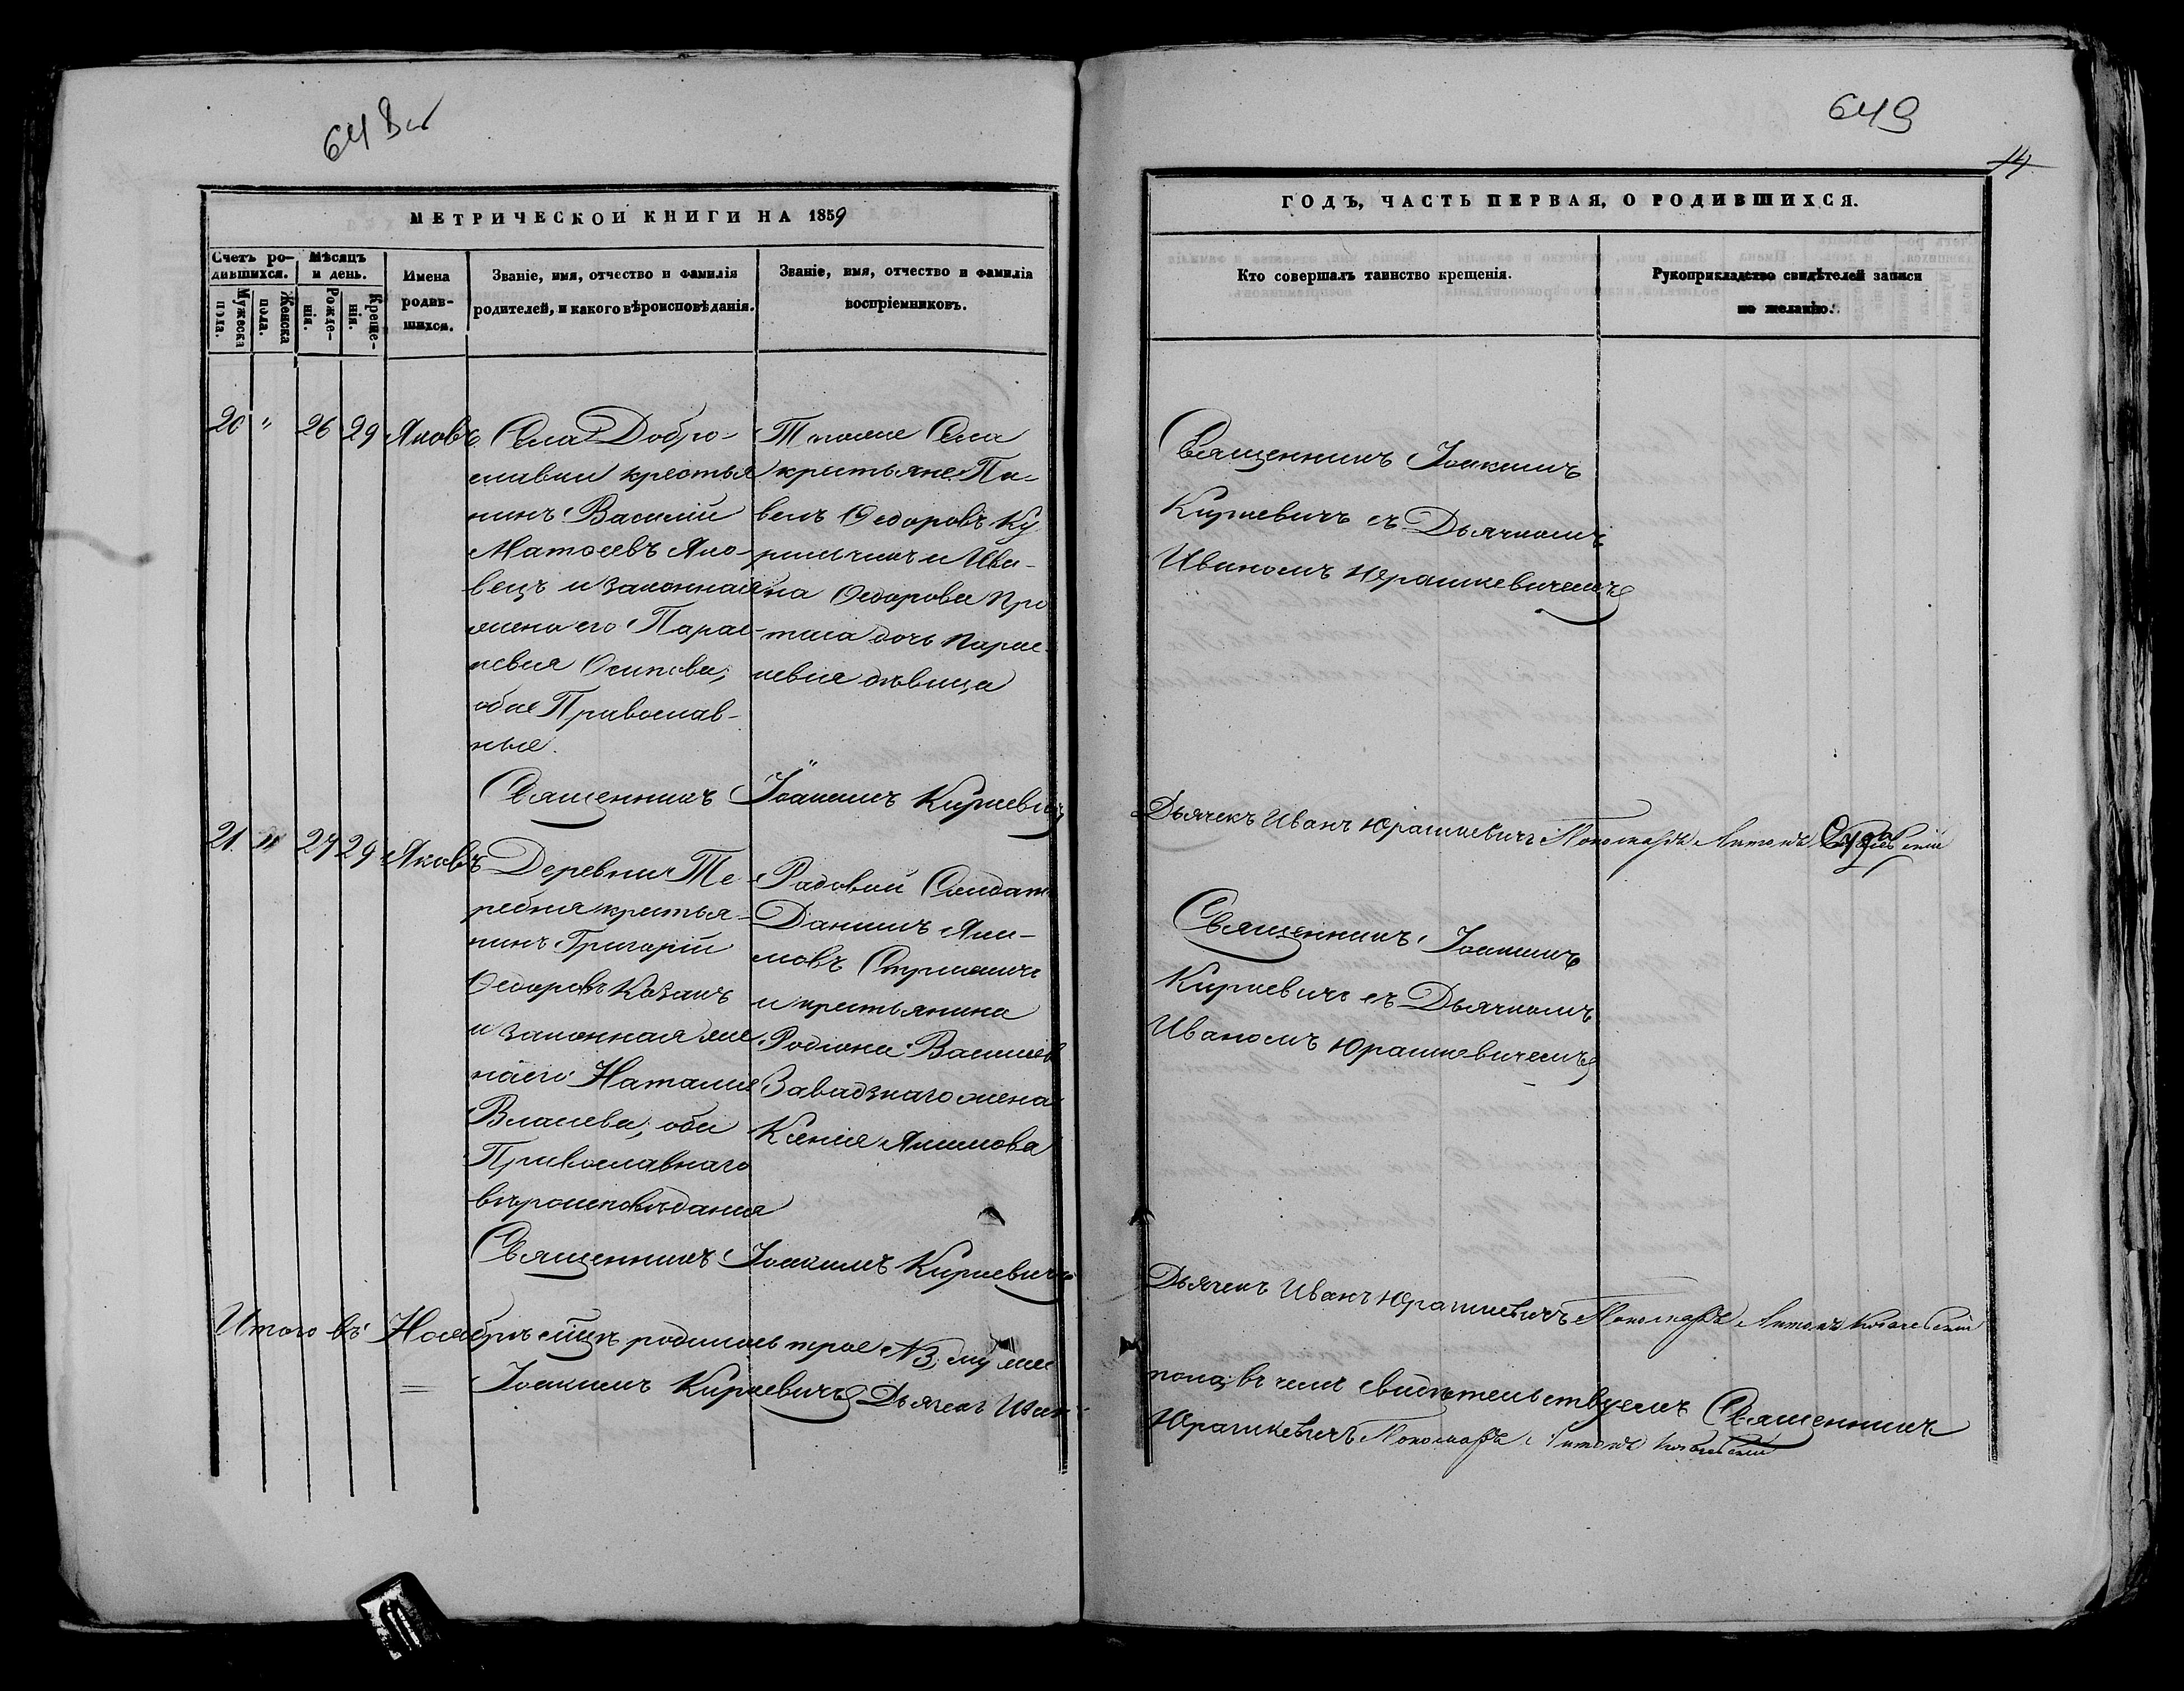 648 об
МЕТРИЧЕСКОЙ КНИГИ НА 1859
Счетъ ро-
дившихся.
Мѣсяцъ
и день.
Мужеска
пола.
Женска
пола.
Рожде-
нія.
Креще-
нія.
Имена
родив-
шихся.
Званіе, имя, отчество и фамилія
родителей, и какого вѣроисповѣданія.
Званіе, имя, отчество и фамилія
воспріемниковъ.
20 " 26 29 Яковъ
Села Добро-
славки крестья
нинъ Василій
Матѳеевъ Яко-
вецъ и законная
жена его Парас-
кевія Осипова,
обое Православ-
ные.
Тогоже Села
крестьяне Па-
велъ Ѳедоровъ Ку
и Ива-
на Ѳедорова Про
таса дочь Парас-
кевія дѣвица
Священникъ Іоакимъ Киркевичъ
21 " 27 29 Яковъ
Деревни Те-
ребня крестья-
нинъ Григорій
Ѳедоровъ Козакъ
и законная же
на его Наталія
Власіева, оба
Православнаго
вѣроисповѣданія
Рядовой Солдатъ
Даніилъ Яки-
мовъ
и крестьянина
Родіона Васильев
Завадзкаго жена
Ксенія Акимова
Священникъ Іоакимъ Киркевичъ
Итого въ Ноябрѣ мцѣ родилось трое №3, муже
Іоакимъ Киркевичъ Дьячекъ Иван
649
14
ГОДЪ, ЧАСТЬ ПЕРВАЯ, О РОДИВШИХСЯ.
Кто совершалъ таинство крещенія.
Рукоприкладство свидѣтелей записи
по желанію.
Священникъ Іоакимъ
Киркевичъ съ Дьячкомъ
Иваномъ Юрашкевичемъ
Дьячекъ Иванъ Юрашкевичъ Пономарь Антонъ
Священникъ Іоакимъ
Киркевичъ съ Дьячкомъ
Иваномъ Юрашкевичемъ
Дьячекъ Иванъ Юрашкевичъ Пономарь Антонъ
пола, въ чемъ свидѣтельствуемъ Священникъ
Юрашкевичъ Пономарь Антонъ